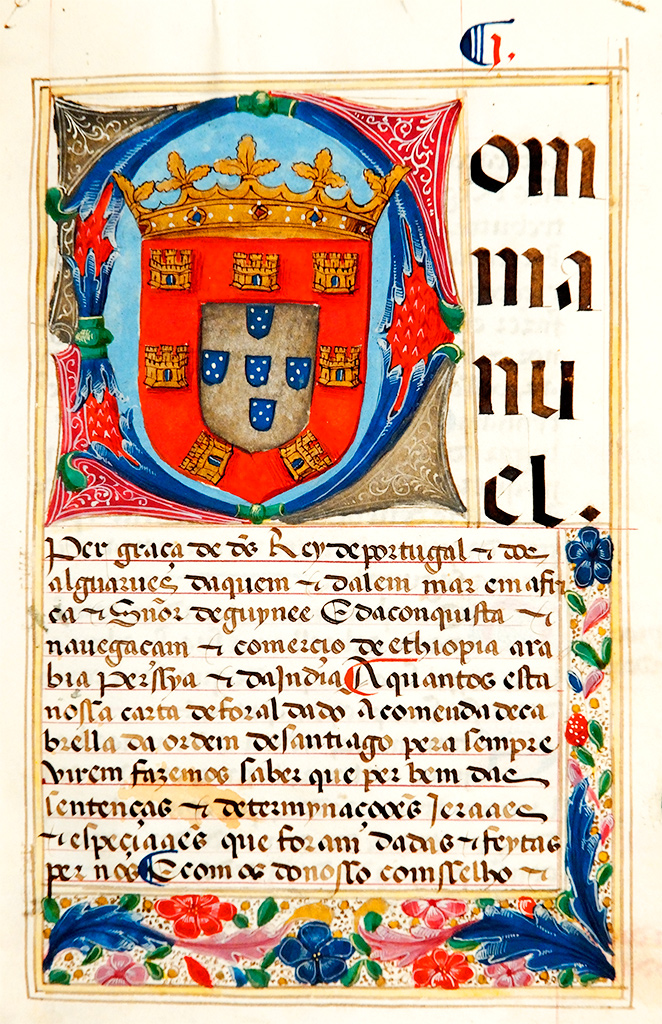 Dom
ma
nu
el.
Per graca de ds Rey de portugal ⁊ dos
alguarues daquem ⁊ dalem mar em afri
ca ⁊ Sñor deguynee E daconquista ⁊
nauegacam ⁊ comercio de ethiopia ara
bia perssya ⁊ da India A quantos esta
nossa carta de foral dado A comenda de ca
brella da ordem de santiago pera sempre
virem fazemos saber que per bem das
sentenças ⁊ determynacoões Jeraaes
⁊ espeçiaaes que foram dadas ⁊ feytas
per nos E com os do nosso comsselho ⁊